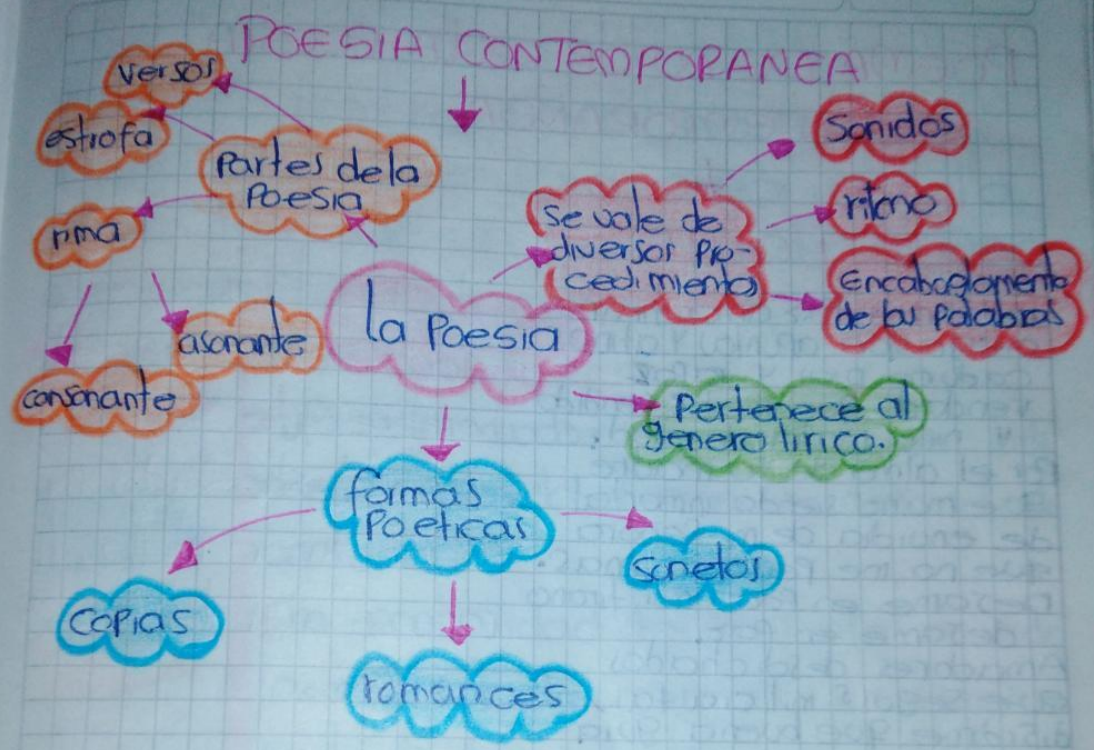 POESIA CONTEMPORANEA
versos
estrofa
Partes de la
Poesia
rima
asonante
consonante
la Poesia
se vale de
diversos pro-
cedimientos
Sonidos
ritmo
de las palabras
Pertenece al
genero lirico.
formas
Poeticas
copias
sonetos
romances